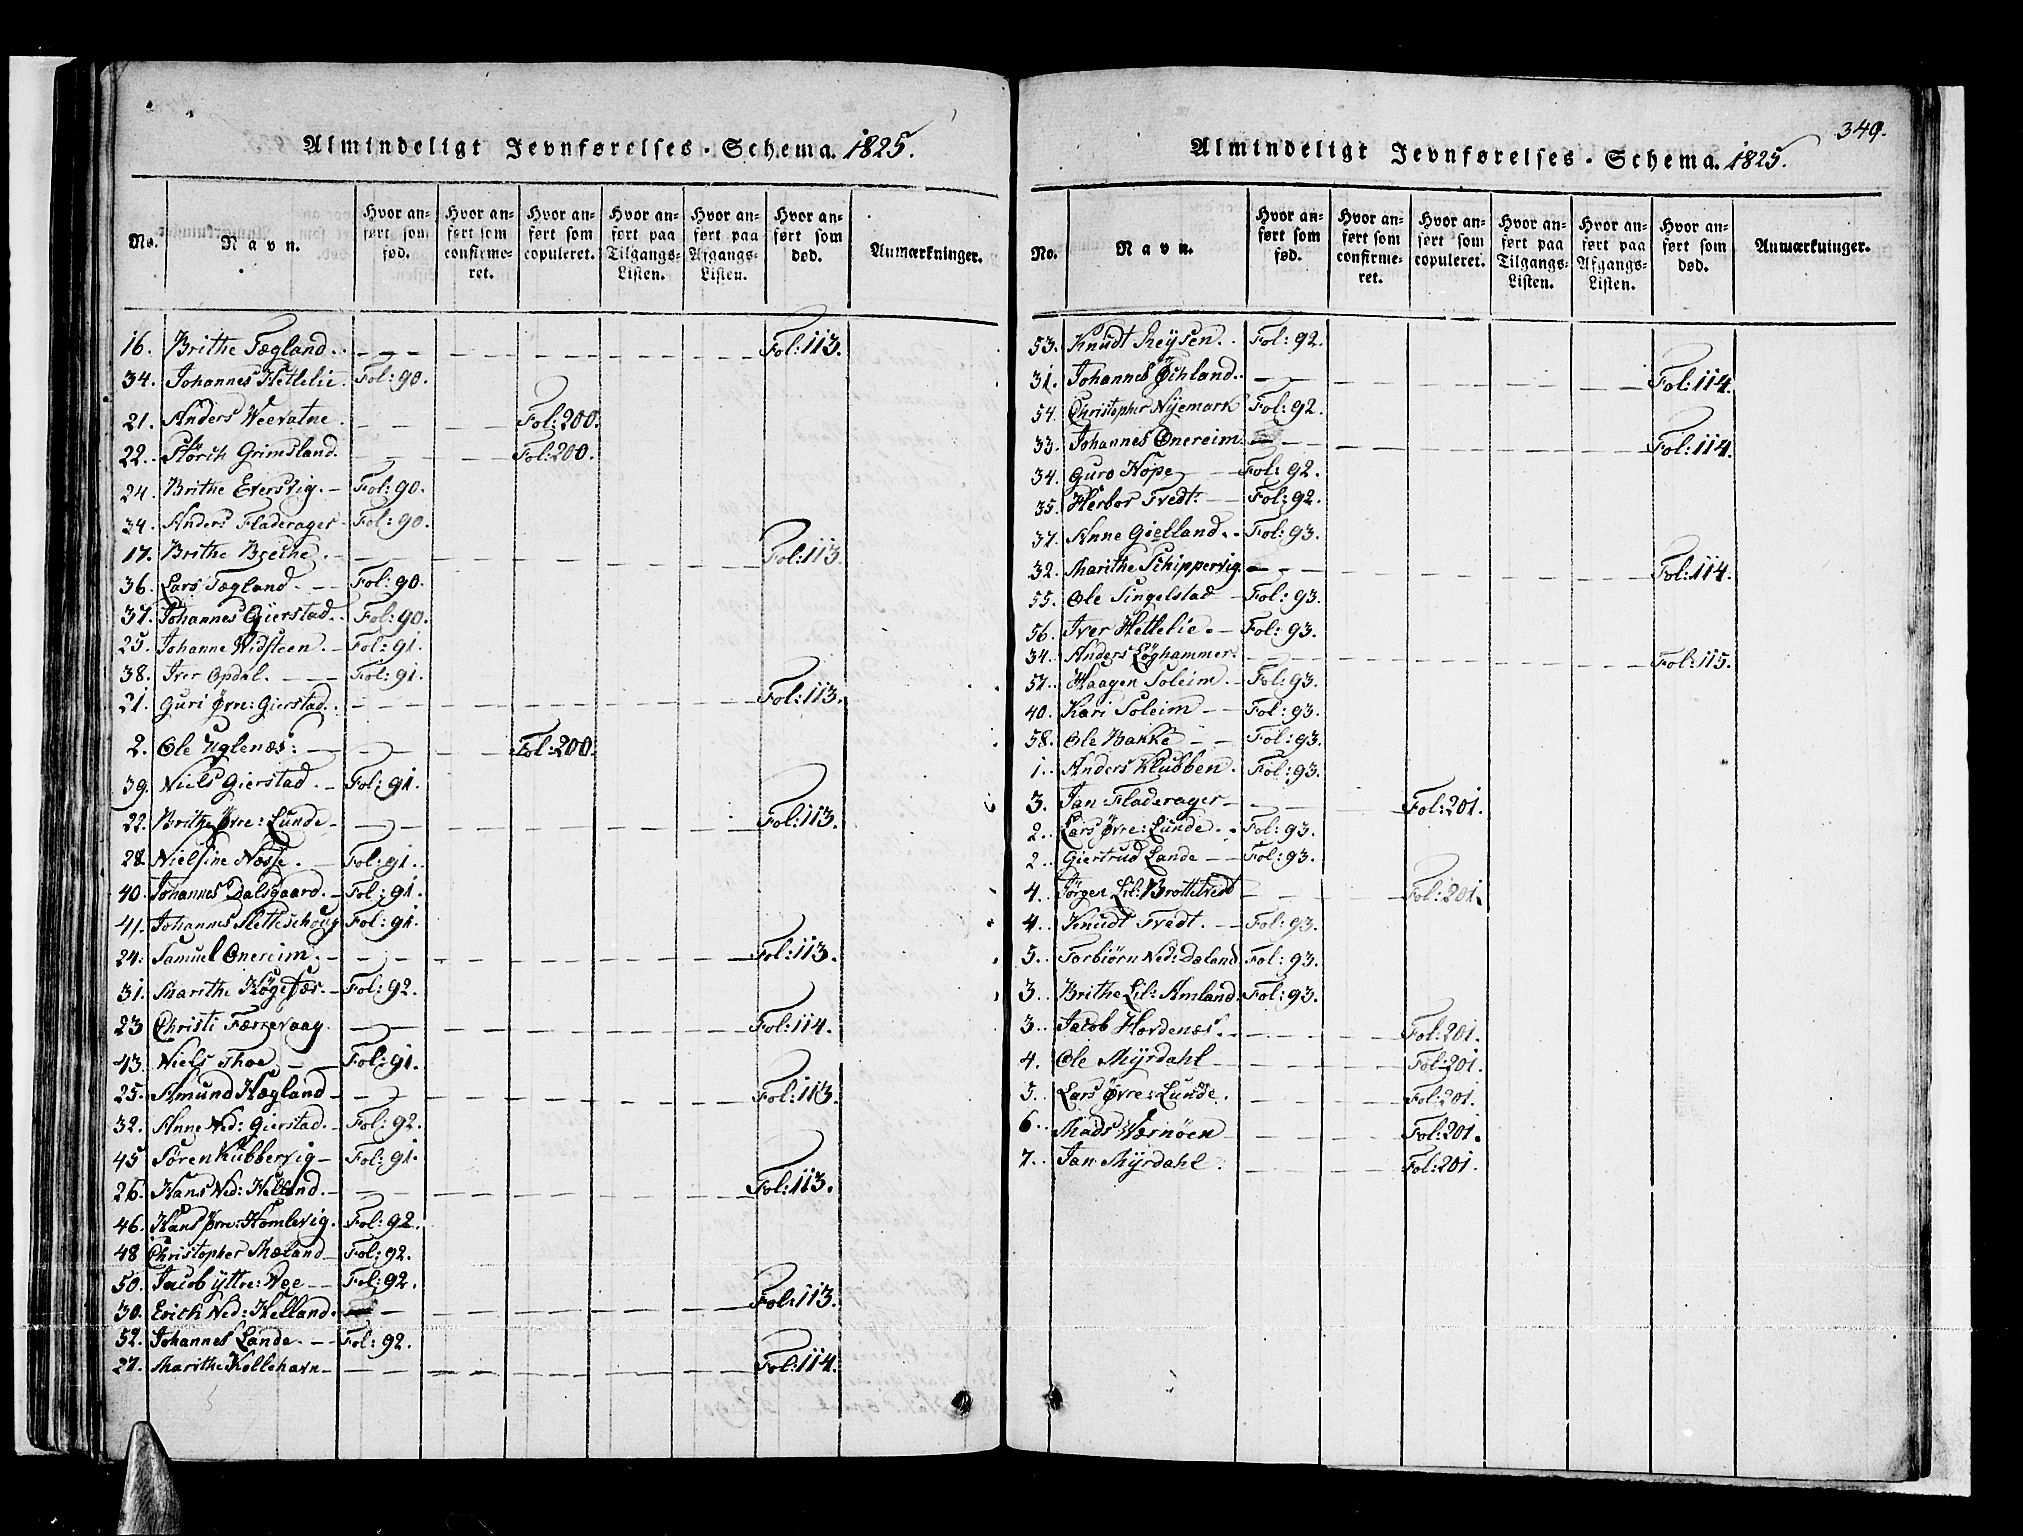 Almindeligt Jevnførelses-Schema. 1825.
No. Navn. Hvor anført som fød. Hvor anført som confirmeret. Hvor anført som copuleret. Hvor anført paa Tilgangs-Listen. Hvor anført paa Afgangs-Listen. Hvor anført som død. Anmærkninger.
16. Brithe Tægland. Fol: 113.
34. Johannes Hettelie. Fol: 90.
21. Anders Weevatne. Fol: 200.
22. Størck Grimsland. Fol: 200.
24. Brithe Eversvig. Fol: 90.
34. Anders Fladerager Fol: 90.
17. Brithe Fol: 113.
36. Lars Tægland. Fol: 90.
37. Johannes Gierstad. Fol: 90.
25. Johanne Widsteen. Fol: 91.
38. Iver Opdal. Fol: 91.
21. Guri Øvre: Gierstad. Fol: 113.
2. Ole Uglenæs: Fol: 200.
39. Niels Gierstad. Fol: 91.
22. Brithe Øvre: Lunde Fol: 113.
28. Nielsine Næsse. Fol: 91.
40. Johannes Dalsgaard. Fol: 91.
41. Johannes Sletteschoug Fol: 91.
24. Samuel Onereim. Fol: 113.
31. Marithe Høgefæs. Fol: 92.
23 Christi Færrevaag. Fol: 114.
43. Niels Thoe Fol: 91.
25. Amund Hægland Fol: 113.
32. Anne Ned: Gierstad. Fol: 92.
45 Søren Kubbervig Fol: 91.
26. Hans Ned: Helland. Fol: 113.
46. Hans Øvre: Homlevig. Fol: 92.
48 Christopher Mæland Fol: 92.
50. Jacob yttre: Vee Fol: 92.
30. Erich Ned: Helland. Fol: 113.
52. Johannes Lande. Fol: 92.
27. Marithe Kollehavn Fol: 114.
349.
Almindeligt Jevnførelses-Schema. 1825.
No. Navn. Hvor anført som fød. Hvor anført som confirmeret. Hvor anført som copuleret. Hvor anført paa Tilgangs-Listen. Hvor anført paa Afgangs-Listen. Hvor anført som død. Anmærkninger.
53. Knudt Reysen. Fol: 92.
31. Johannes Øchland. Fol: 114.
54. Christopher Nyemark Fol: 92.
33. Johannes Onereim. Fol: 114.
34. Guro Hope Fol: 92.
35. Herbor Tvedt. Fol: 92.
37. Anne Gielland. Fol: 93.
32. Marithe Schippervig. Fol: 114.
55. Ole Singelstad Fol: 93.
56. Iver Hettelie. Fol: 93.
34. Anders Løghammer. Fol: 115.
57. Haagen Soleim. Fol: 93.
40. Kari Soleim Fol: 93.
58. Ole Bakke Fol: 93.
1. Anders Klubben. Fol: 93.
3. Jan Fladerager Fol: 201.
2. Lars Øvre: Lunde. Fol: 93.
2. Giertrud Lande Fol: 93.
4. Jørgen Lil: Brottetvedt Fol: 201.
4. Knudt Tvedt. Fol: 93.
5. Torbiørn Ned: Daland Fol: 93.
3. Brithe Lil: Amland. Fol: 93.
3. Jacob Hordenæs. Fol: 201.
4. Ole Myrdahl Fol: 201.
5. Lars Øvre: Lunde. Fol: 201.
6. Mads Wernøen Fol: 201.
7. Jan Myrdahl. Fol: 201.